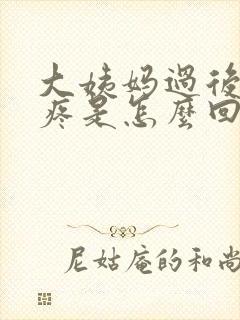 大姨妈過後
疼是怎麼回
尼姑庵的和尚